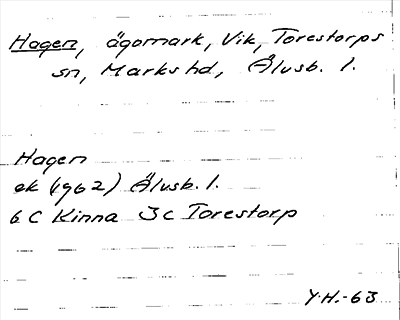 Hagen, ägomark, Vik, Torestorps
sn, Marks hd, Älvsb. l.
Hagen
ek (1962) Älvsb. l.
6 C Kinna 3 c Torestorp
Y.H.-63